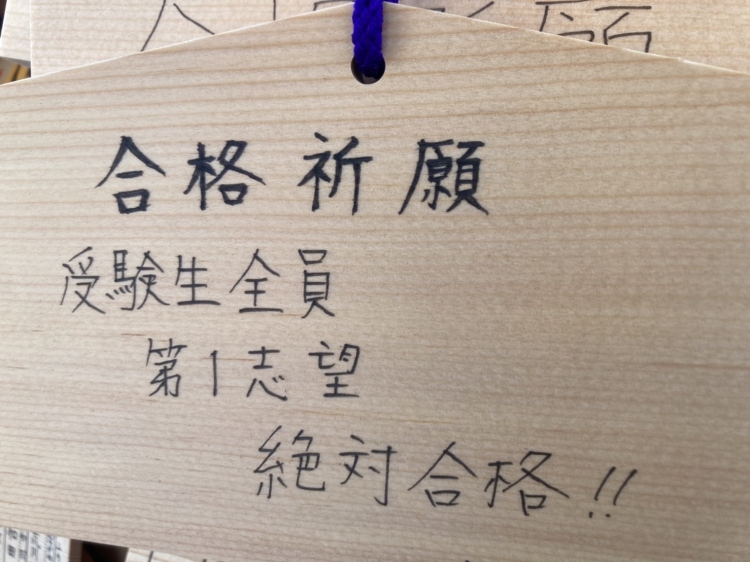 願
合格祈願
受験生全員
第1志望
絶対合格!!